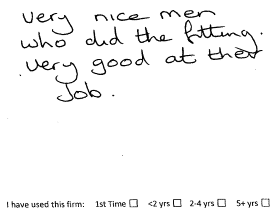 very nice men
who did the fitting.
very good at their
Job.
I have used this firm: 1st Time ☐ <2 yrs ☐ 2-4 yrs ☐ 5+ yrs ☐